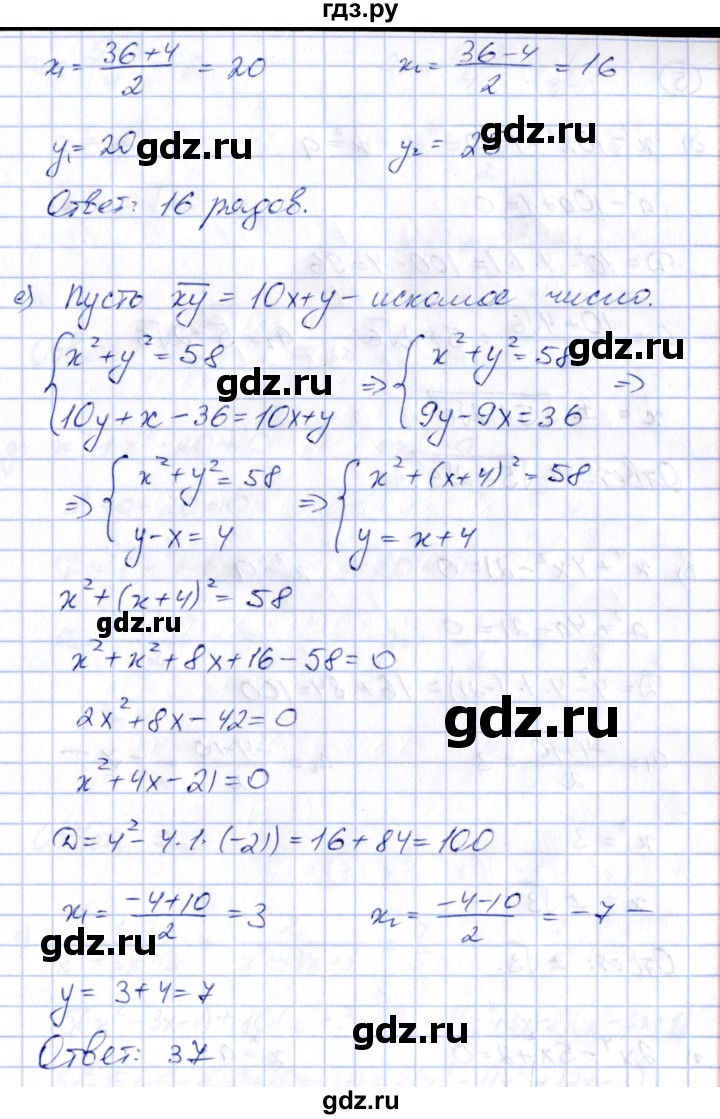 гдз.ру
x₁ = (36+4)/2 = 20    x₂ = (36-4)/2 = 16
y₁ = 20    y₂ =
gdz.ru gdz.ru
Ответ: 16 рядов.
e) Пусть x̅y̅ = 10x+y - искомое число.
{ x²+y² = 58    => { x²+y² = 58    =>
gdz.ru gdz.ru
{ 10y+x-36 = 10x+y    { 9y-9x = 36
=> { x²+y² = 58    => { x²+(x+4)² = 58
{ y-x = 4    { y = x+4
x²+(x+4)² = 58
gdz.ru
x²+x²+8x+16-58=0
2x²+8x-42=0
gdz.ru
x²+4x-21=0
D=4²-4·1·(-21)=16+84=100
x₁ = (-4+10)/2 = 3    x₂ = (-4-10)/2 = -7 -
gdz.ru
y = 3+4=7
gdz.ru
Ответ: 37
gdz.ru
gdz.ru